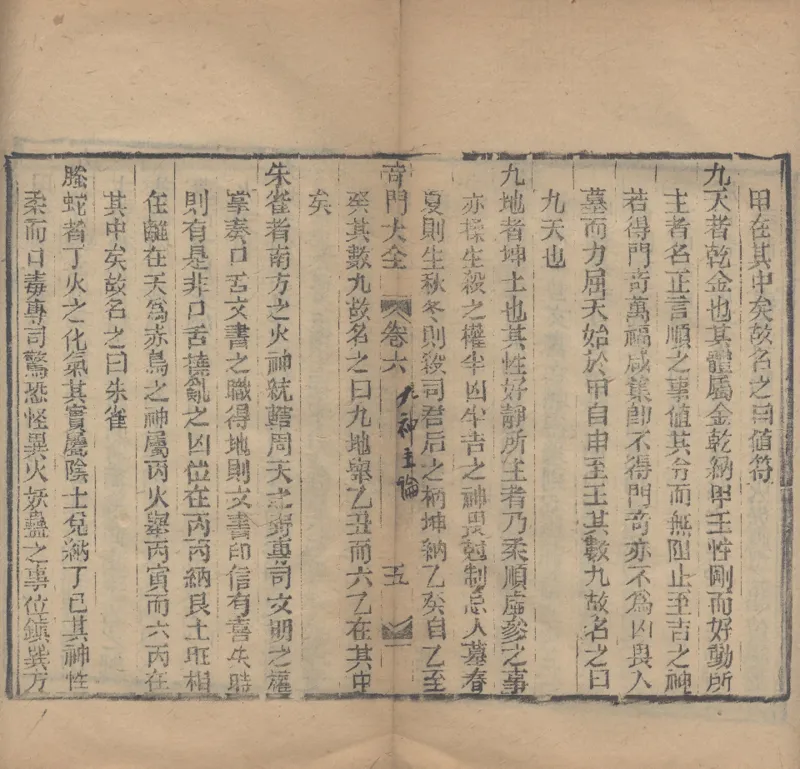 甲在其中矣故名之曰値符
九天者乾金也其體屬金乾納甲壬性剛而好動所
主者名正言順之事值其分而無阻止至吉之神
若得門奇萬福咸集卽不得門奇亦不為凶畏入
墓而力屈天始於甲自甲至壬其數九故名之曰
九天也
九地者坤土也其性好靜所主者乃柔順虛參之事
亦操生殺之權半凶半吉之神畏尅制忌入墓春
夏則生秋冬則殺司君后之柄坤納乙癸自乙至
奇門大全 卷六 九神主論 五
癸其數九故名之曰九地舉乙丑而六乙在其中
矣
朱雀者南方之火神統轄周天之專司文明之權
掌奏口舌文書之職得地則文書印信有喜失時
則有是非口舌撓亂之凶位在丙丙納艮土旺相
在離在天爲赤鳥之神屬丙火舉丙寅而六丙在
其中矣故名之曰朱雀
螣蛇者丁火之化氣其實屬陰土兌納丁巳其神性
柔而口毒專司驚恐怪異火妖蠱之事位鎮巽方